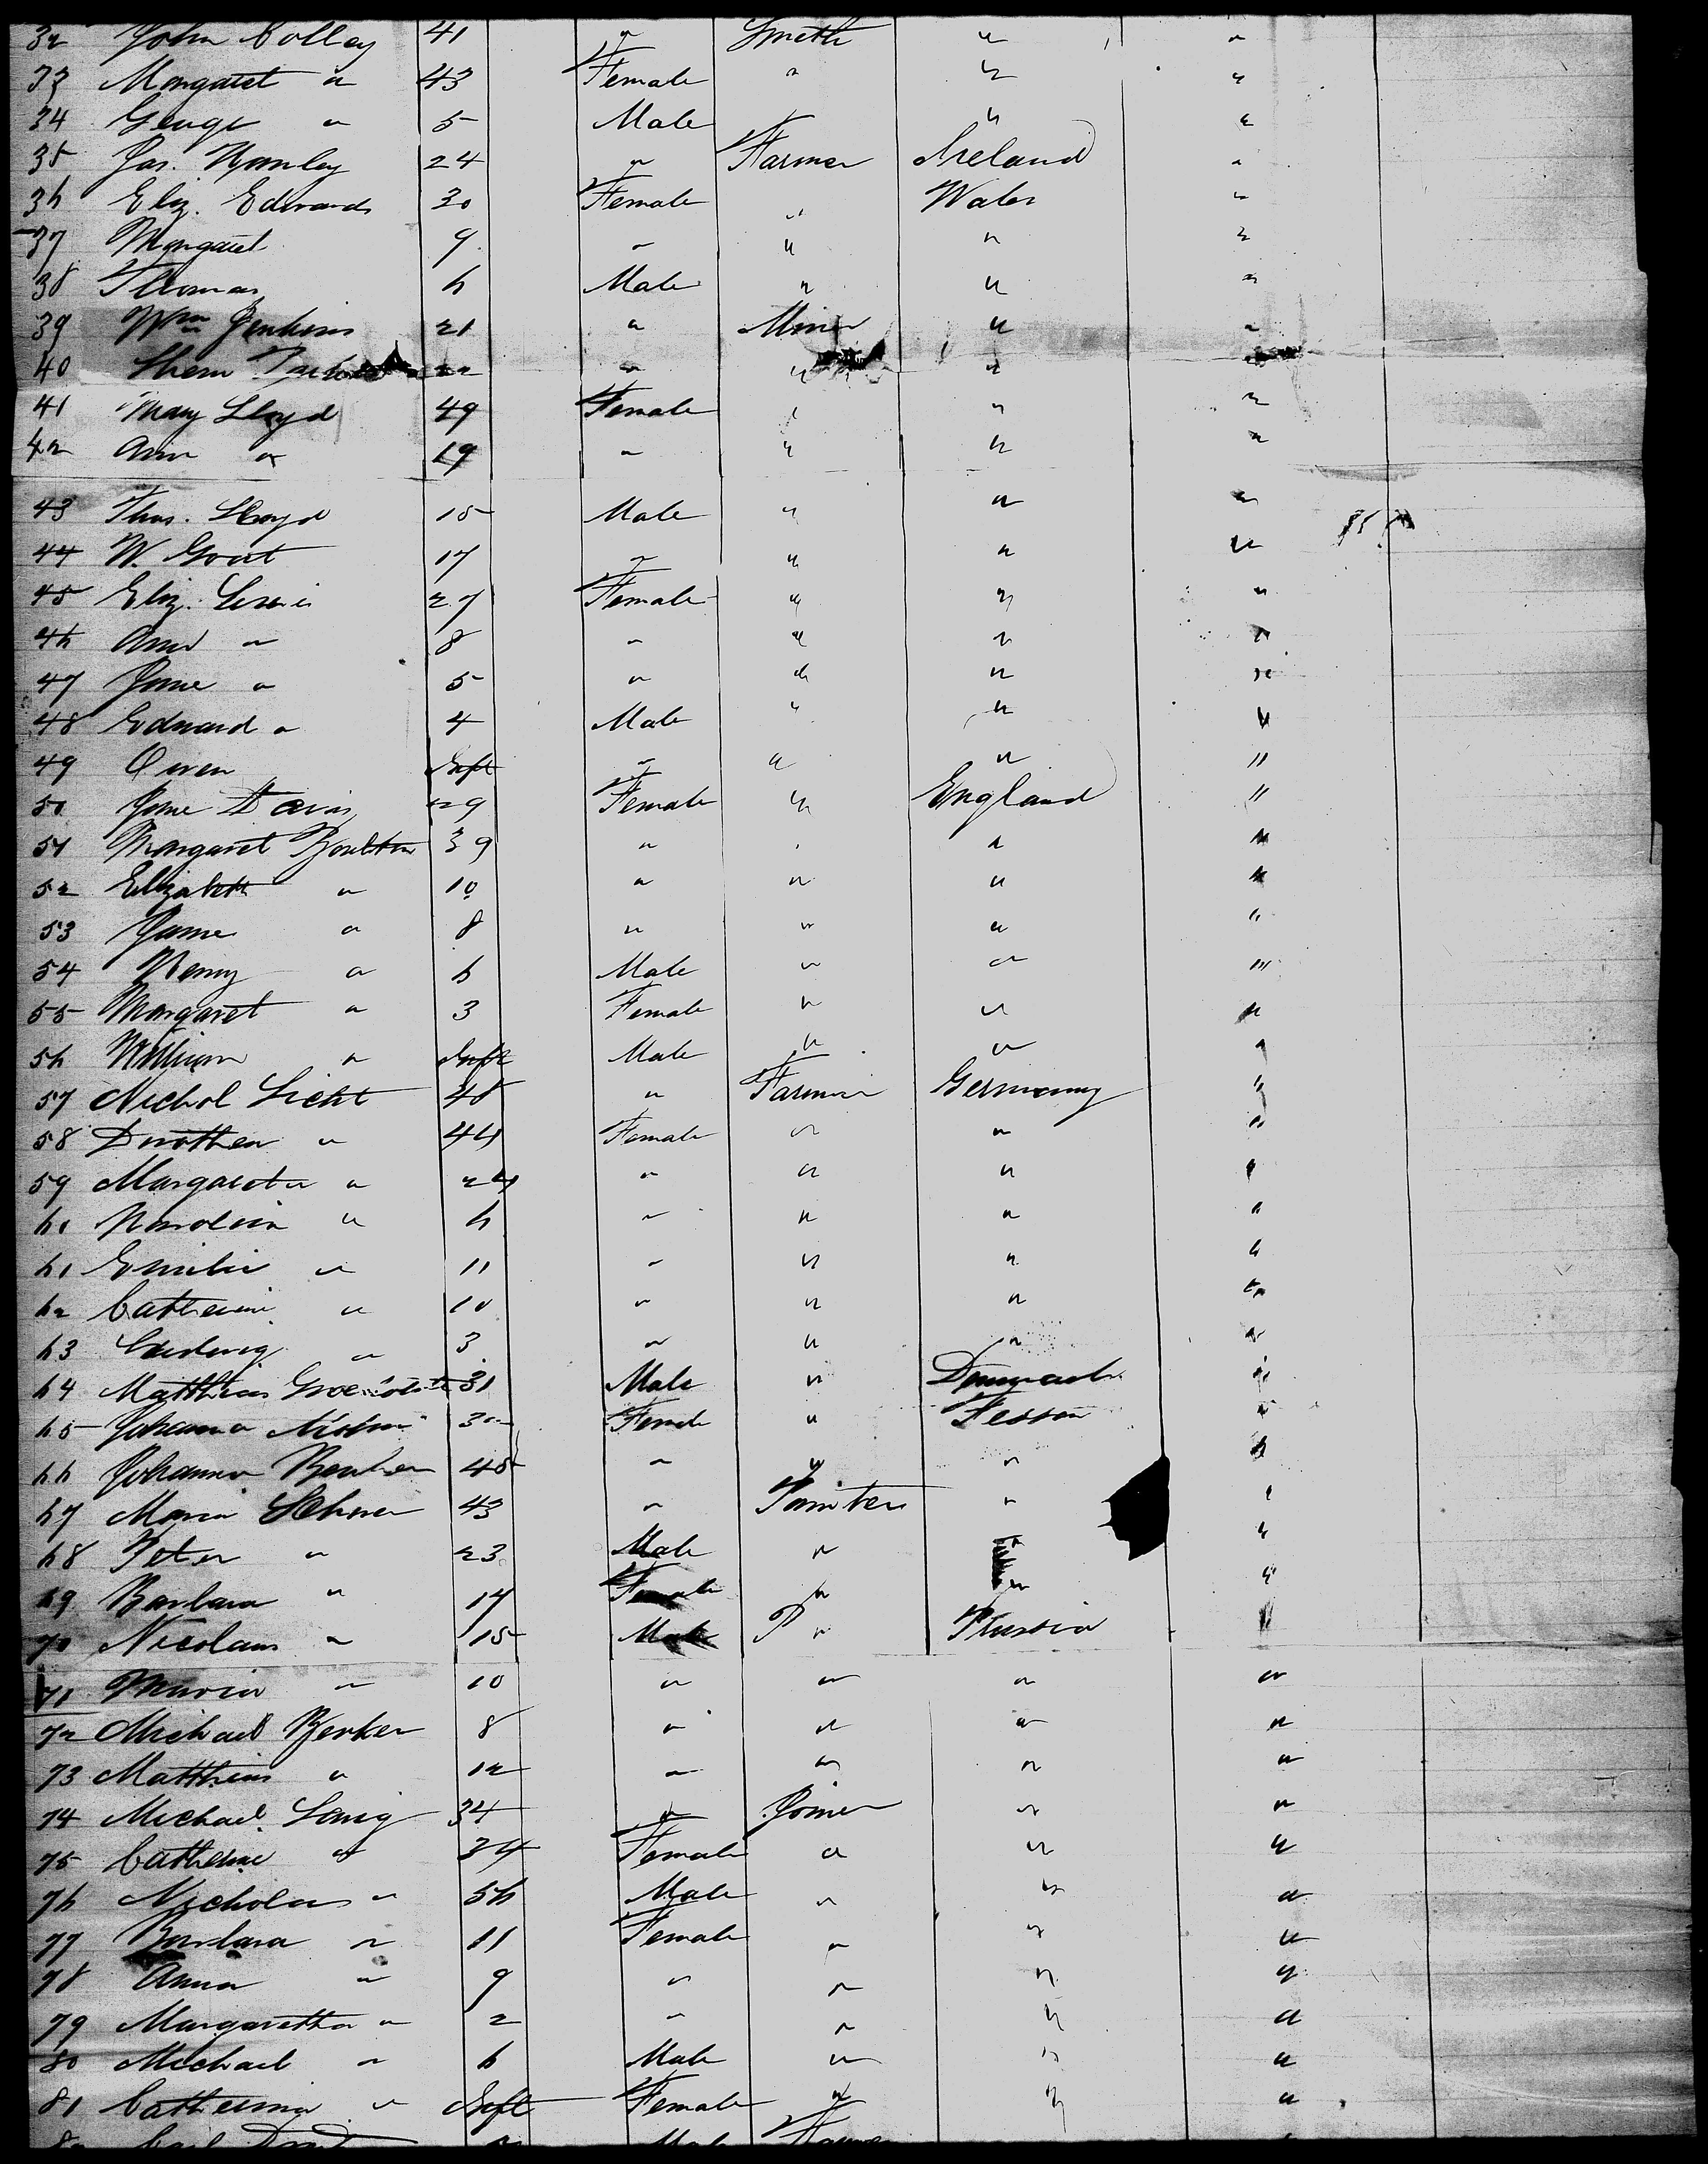 32 John Colley 41 " Smith " "
33 Margaret " 43 Female " " "
34 George " 5 Male " "
35 Jas. Hanley 24 " Farmer Ireland "
36 Eliz. Edwards 30 Female " Wales "
37 Margaret 9 " " " "
38 Thomas 6 Male " " "
39 Wm Jenkins 21 " Miner " "
40 " " " "
41 Mary Lloyd 49 Female " " "
42 Ann " 19 " " " "
43 Thos. Lloyd 15 Male " " "
44 W. Grout 17 " " " "
45 Eliz. Lewis 27 Female " " "
46 Ann " 8 " " " "
47 Jane " 5 " " " "
48 Edward " 4 Male " " "
49 Owen Inft " " " "
50 Jane Davis 29 Female " England "
51 Margaret Boulton 39 " " " "
52 Elizabeth " 10 " " " "
53 Jane " 8 " " " "
54 Henry " 6 Male " " "
55 Margaret " 3 Female " " "
56 William " Inft Male " " "
57 Nichol Licht 48 " Farmer Germany "
58 Dorothea " 44 Female " " "
59 Margareta " 24 " " " "
60 Karolina " 6 " " " "
61 Emilie " 11 " " " "
62 Catherine " 10 " " " "
63 Ludwig " 3 " " " "
64 Matthias 31 Male " "
65 Johanna 30 Female " "
66 Johanna 45 " " " "
67 Maria 43 " " "
68 Peter " 23 Male " "
69 Barbara " 17 Female " " "
70 Nicolaus " 15 Male " Prussia "
71 Maria " 10 " " " "
72 Michael Berker 8 " " " "
73 Matthias " 12 " " " "
74 Michael Lanig 34 " Joiner " "
75 Catherine " 34 Female " " "
76 Nicholas " 56 Male " " "
77 Barbara " 11 Female " " "
78 Anna " 9 " " " "
79 Margaretha " 2 " " " "
80 Michael " 6 Male " " "
81 Catherina " Inft Female " " "
82 Carl Male Farmer